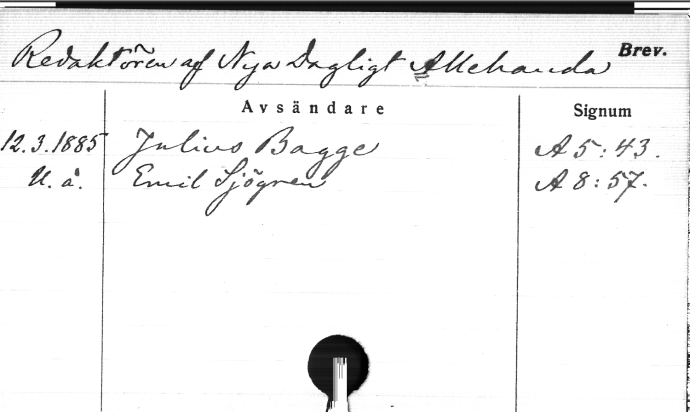 Redaktören af Nya Dagligt Allehanda Brev.
Avsändare Signum
12.3.1885 Julius Bagge A 5:43.
U. å. Emil Sjögren A 8:57.